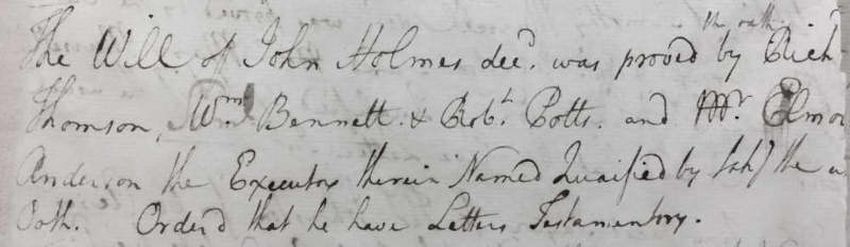 the oath
The Will of John Holmes decd. was proved by Rich
Thomson, Wm Bennett. & Robt. Potts. and Mr. Elmo
Anderson the Executor therein Named Quaified by the
Oath. Order'd that he have Letters Testamentory.